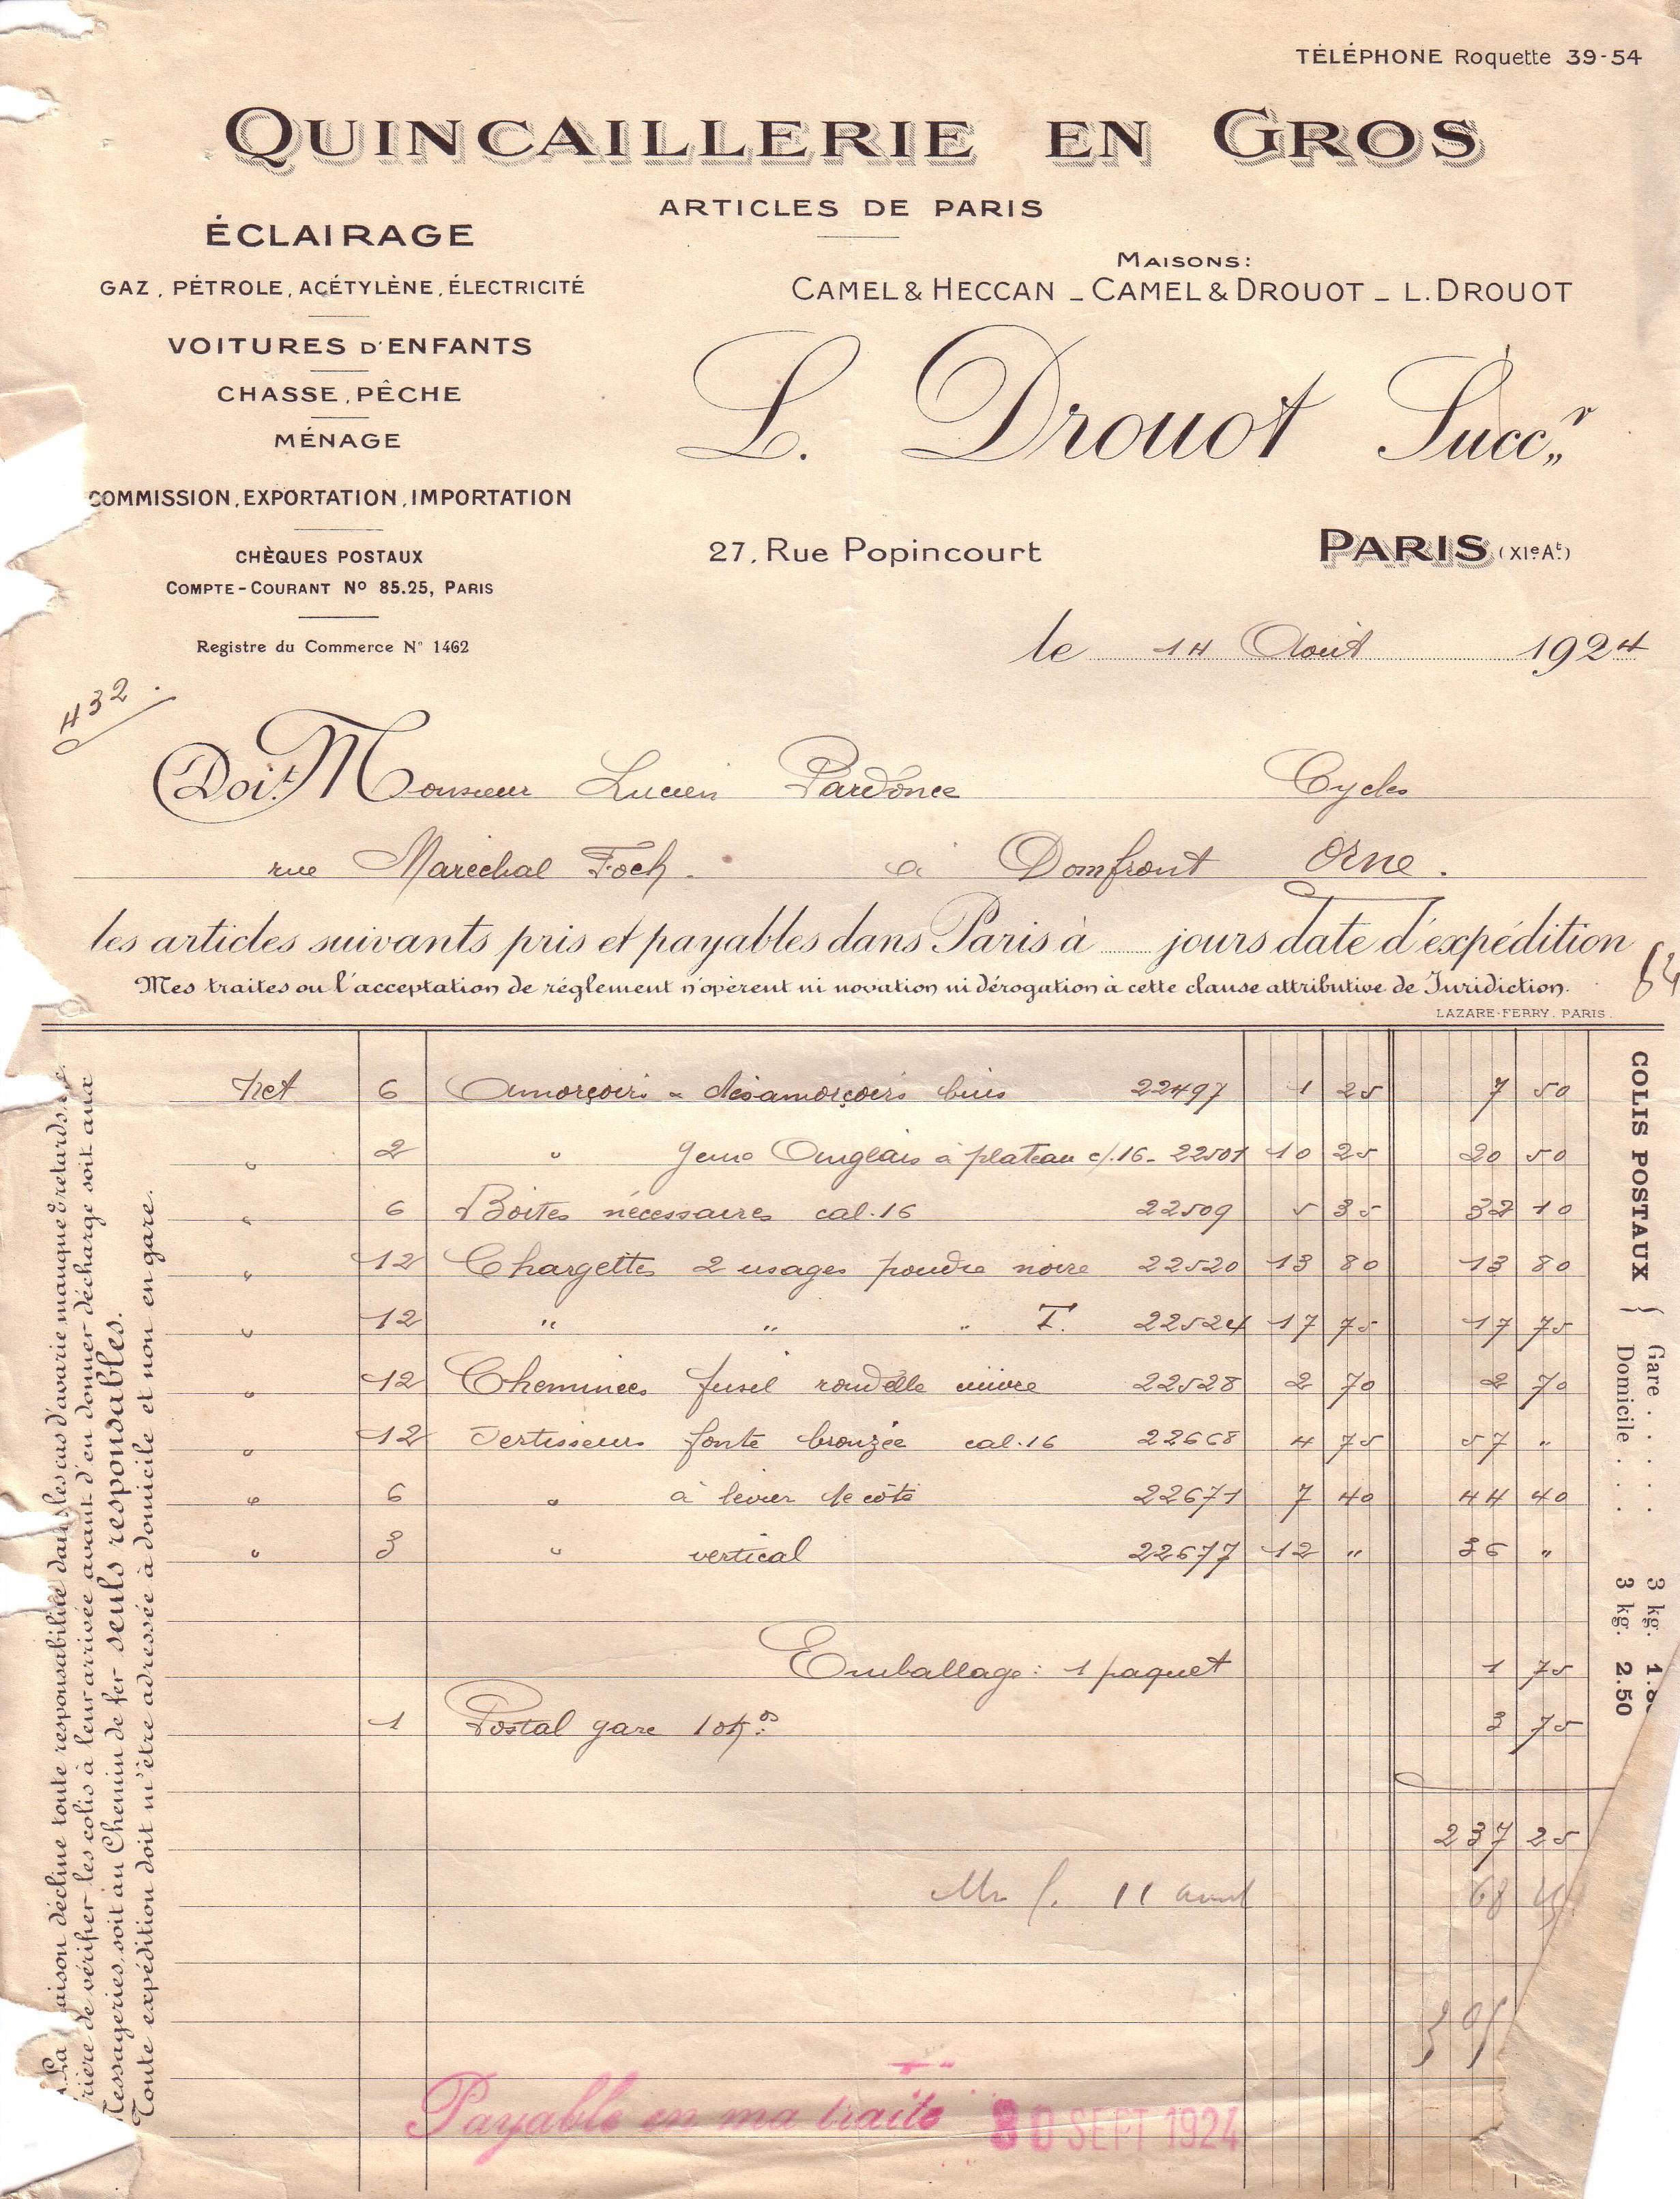 TÉLÉPHONE Roquette 39-54
QUINCAILLERIE EN GROS
ARTICLES DE PARIS
ÉCLAIRAGE
GAZ, PÉTROLE, ACÉTYLÈNE, ÉLECTRICITÉ
VOITURES D'ENFANTS
CHASSE, PÊCHE
MÉNAGE
COMMISSION, EXPORTATION, IMPORTATION
CHÈQUES POSTAUX
COMPTE-COURANT No 85.25, PARIS
Registre du Commerce N° 1462
MAISONS:
CAMEL & HECCAN _ CAMEL & DROUOT _ L. DROUOT
L. Drouot Succr
27, Rue Popincourt PARIS (XIe At)
le 14 Août 1924
432.
Doit Monsieur Lucien Pardonce Cycles
rue Maréchal Foch. à Domfront Orne.
les articles suivants pris et payables dans Paris à jours date d'expédition
Mes traites ou l'acceptation de réglement n'opèrent ni novation ni dérogation à cette clause attributive de Juridiction.
64
LAZARE-FERRY. PARIS.
Net 6 Amorçoirs désamorçoirs buis 22497 1 25 7 50
" 2 " genre Anglais à plateau c/.16- 22501 10 25 20 50
" 6 Boites nécessaires cal.16 22509 5 35 32 10
" 12 Chargettes 2 usages poudre noire 22520 13 80 13 80
" 12 " " " T. 22524 17 75 17 75
" 12 Cheminées fusil rondelle cuivre 22528 2 70 2 70
" 12 Sertisseurs fonte bronzée cal.16 22668 4 75 57 "
" 6 " à levier de côté 22671 7 40 44 40
" 3 " vertical 22677 12 " 36 "
Emballage: 1 paquet 1 75
1 Postal gare 10ks 3 75
237 25
11 68
Payable en ma traite 30 SEPT 1924
COLIS POSTAUX { Gare . . . . 3 kg.
Domicile . . . 3 kg. 2.50
La maison décline toute responsabilité dans les cas d'avarie manque & retards. etc.
Prière de vérifier les colis à leur arrivée avant d'en donner décharge soit aux
Messageries, soit au Chemin de fer seuls responsables.
Toute expédition doit m'être adressée à domicile et non en gare.